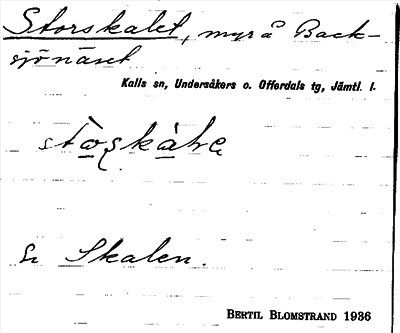 Storskalet, myr å Back-
sjönäset
Kalls sn, Undersåkers o. Offerdals tg, Jämtl. l.
Skalen.
BERTIL BLOMSTRAND 1936